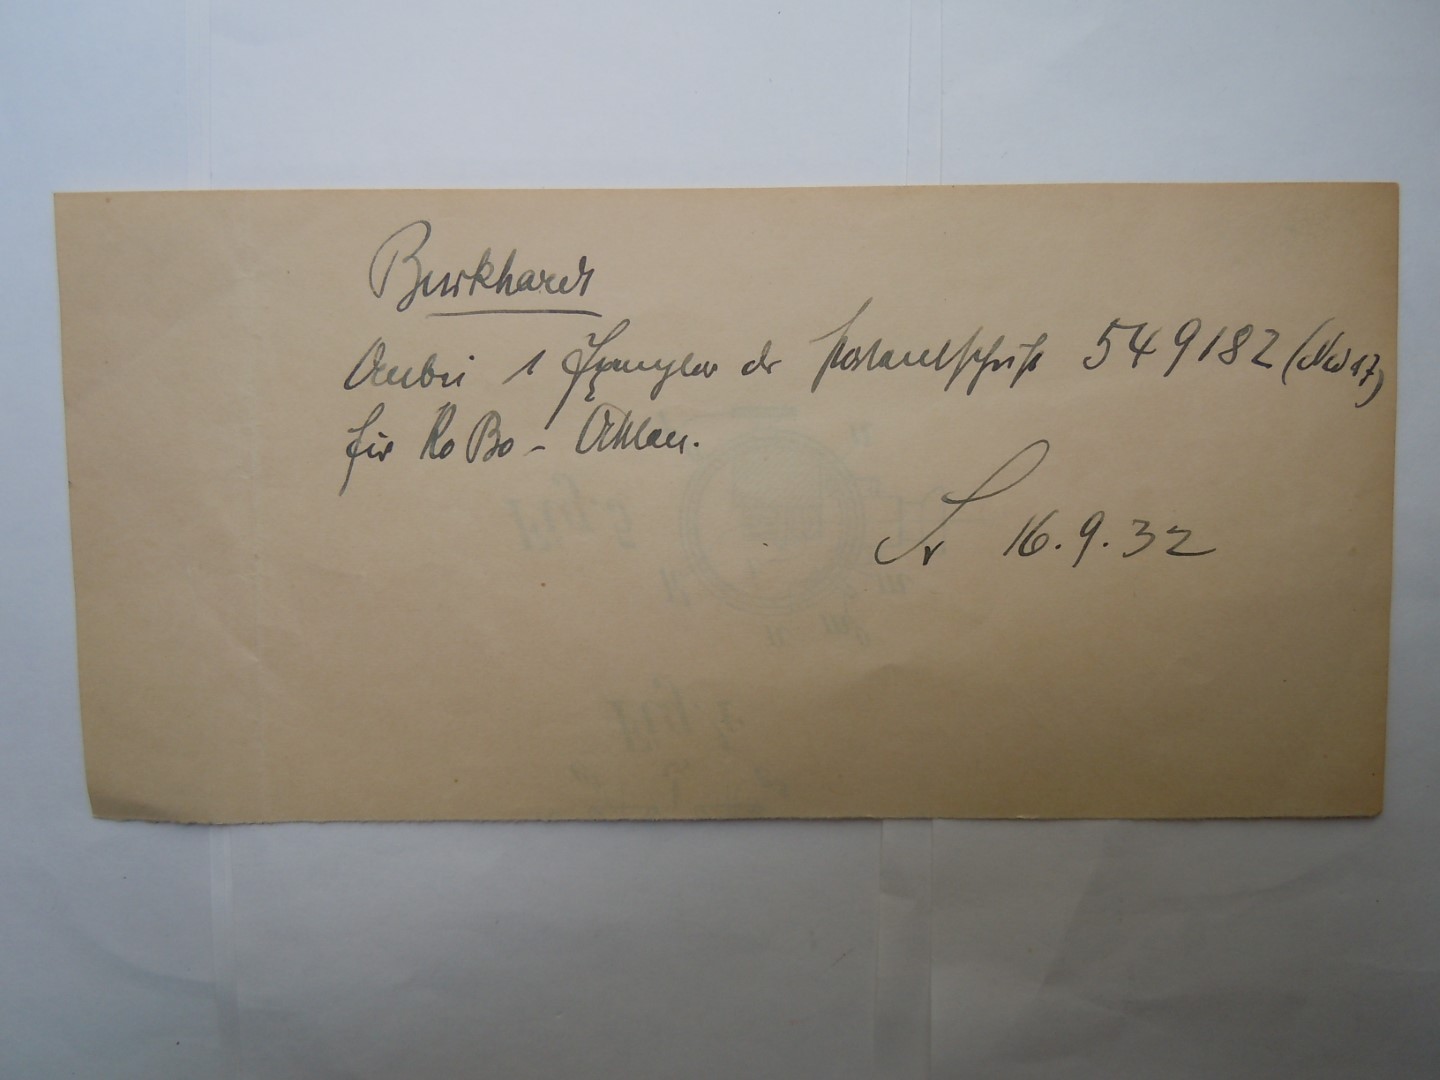 Burkhardt
Anbei 1 Exemplar der Patentschrift 549182 (Nw 17)
für RoBo - Akten.
Sr 16.9.32